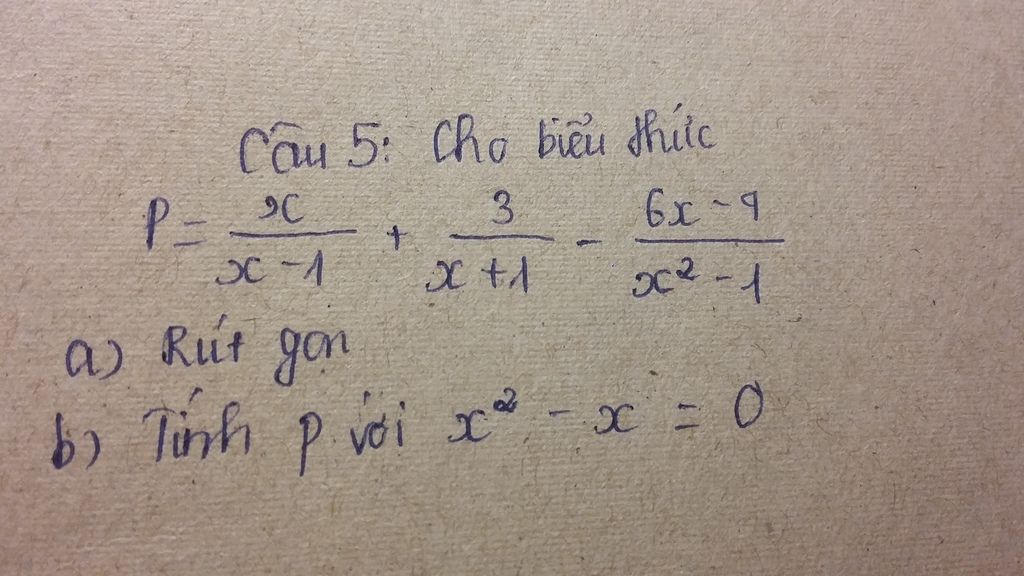 Câu 5: Cho biểu thức
P = x/(x - 1) + 3/(x + 1) - (6x - 4)/(x² - 1)
a) Rút gọn
b) Tính P với x² - x = 0